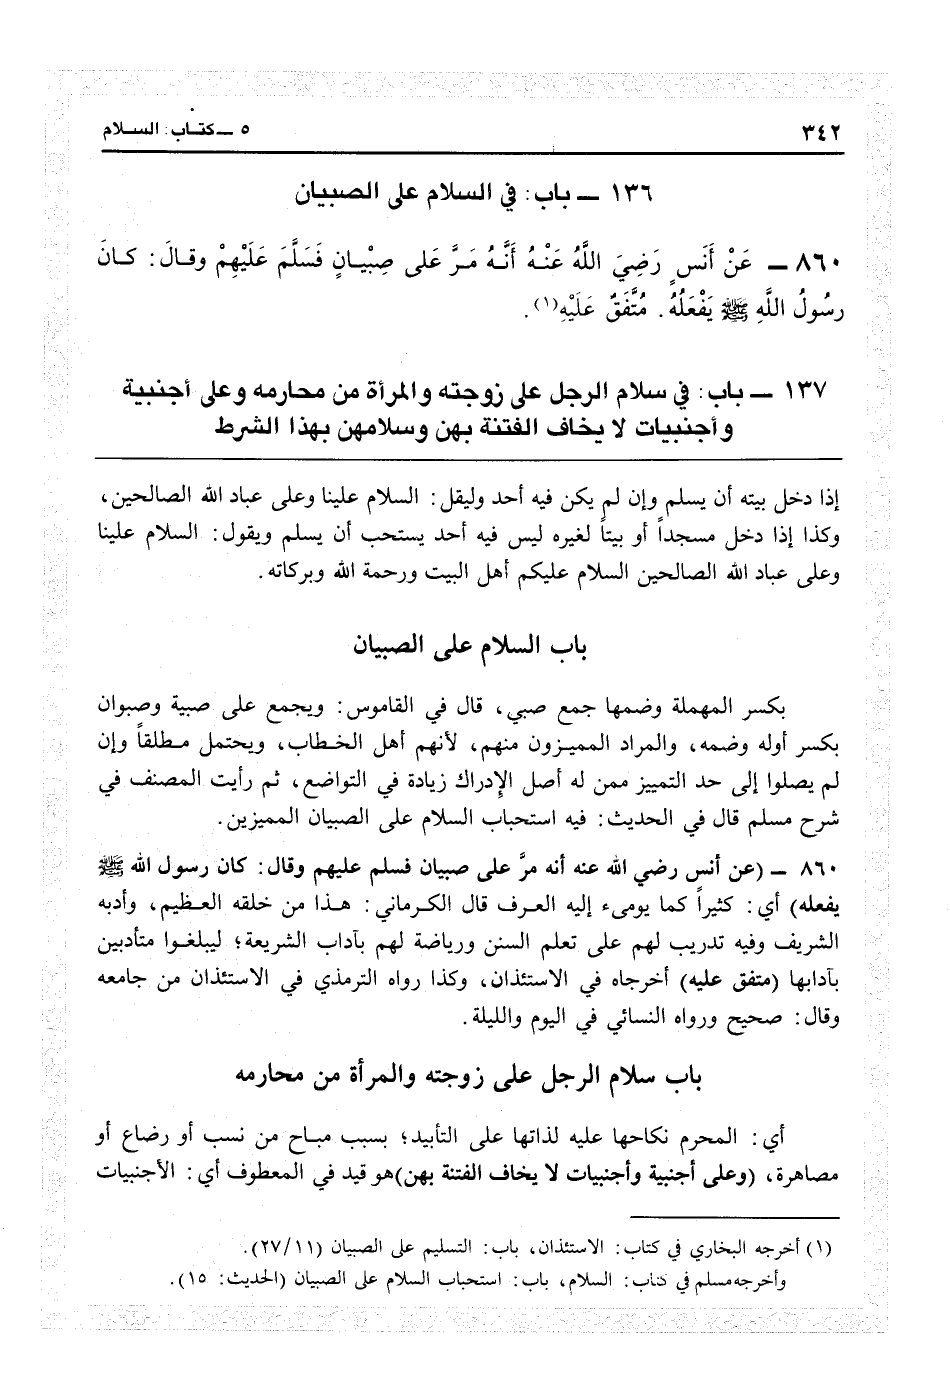 ٣٤٢
٥ ــ كتاب: السلام
١٣٦ ــ باب: في السلام على الصبيان
٨٦٠ ــ عَنْ أَنَسٍ رَضِيَ اللَّهُ عَنْهُ أَنَّهُ مَرَّ عَلى صِبْيانٍ فَسَلَّمَ عَلَيْهِمْ وقالَ: كانَ
رسُولُ اللَّهِ ﷺ يَفْعَلُهُ. مُتَّفَقٌ عَلَيْهِ(١).
١٣٧ ــ باب: في سلام الرجل على زوجته والمرأة من محارمه وعلى أجنبية
وأجنبيات لا يخاف الفتنة بهن وسلامهن بهذا الشرط
إذا دخل بيته أن يسلم وإن لم يكن فيه أحد وليقل: السلام علينا وعلى عباد الله الصالحين،
وكذا إذا دخل مسجداً أو بيتاً لغيره ليس فيه أحد يستحب أن يسلم ويقول: السلام علينا
وعلى عباد الله الصالحين السلام عليكم أهل البيت ورحمة الله وبركاته.
باب السلام على الصبيان
بكسر المهملة وضمها جمع صبي، قال في القاموس: ويجمع على صبية وصبوان
بكسر أوله وضمه، والمراد المميزون منهم، لأنهم أهل الخطاب، ويحتمل مطلقاً وإن
لم يصلوا إلى حد التمييز ممن له أصل الإدراك زيادة في التواضع، ثم رأيت المصنف في
شرح مسلم قال في الحديث: فيه استحباب السلام على الصبيان المميزين.
٨٦٠ ــ (عن أنس رضي الله عنه أنه مرَّ على صبيان فسلم عليهم وقال: كان رسول الله ﷺ
يفعله) أي: كثيراً كما يومىء إليه العرف قال الكرماني: هذا من خلقه العظيم، وأدبه
الشريف وفيه تدريب لهم على تعلم السنن ورياضة لهم بآداب الشريعة؛ ليبلغوا متأدبين
بآدابها (متفق عليه) أخرجاه في الاستئذان، وكذا رواه الترمذي في الاستئذان من جامعه
وقال: صحيح ورواه النسائي في اليوم والليلة.
باب سلام الرجل على زوجته والمرأة من محارمه
أي: المحرم نكاحها عليه لذاتها على التأبيد؛ بسبب مباح من نسب أو رضاع أو
مصاهرة، (وعلى أجنبية وأجنبيات لا يخاف الفتنة بهن)هو قيد في المعطوف أي: الأجنبيات
(١) أخرجه البخاري في كتاب: الاستئذان، باب: التسليم على الصبيان (٢٧/١١).
وأخرجه مسلم في كتاب: السلام، باب: استحباب السلام على الصبيان (الحديث: ١٥).